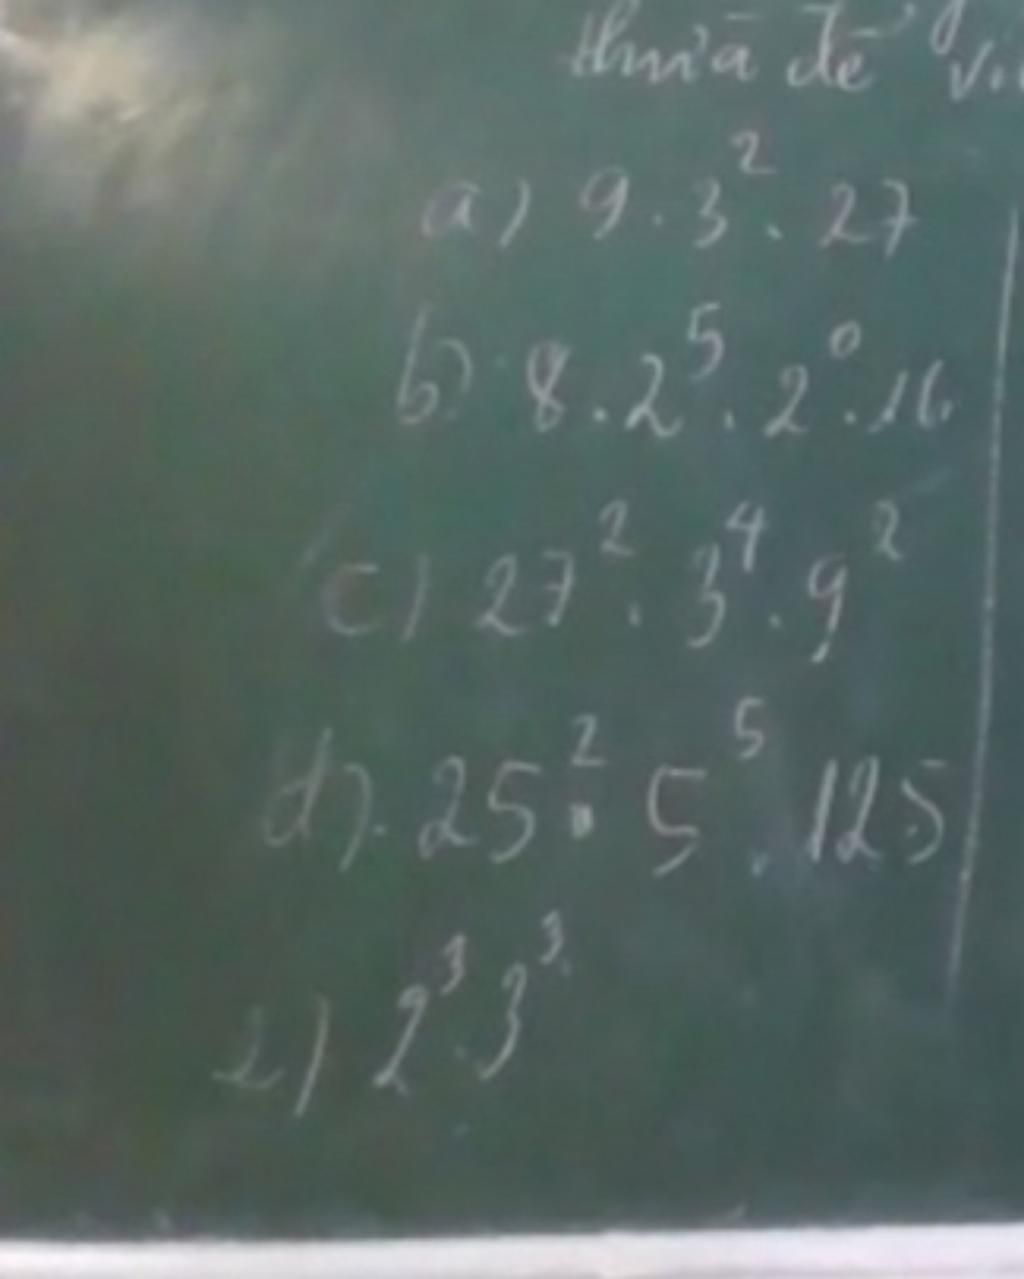 thừa để
a) 9 . 3² . 27
b) 8 . 2⁵ . 2⁰ . 16
c) 27² . 3⁴ . 9²
d) 25² . 5⁵ . 125
e) 2³ . 3³